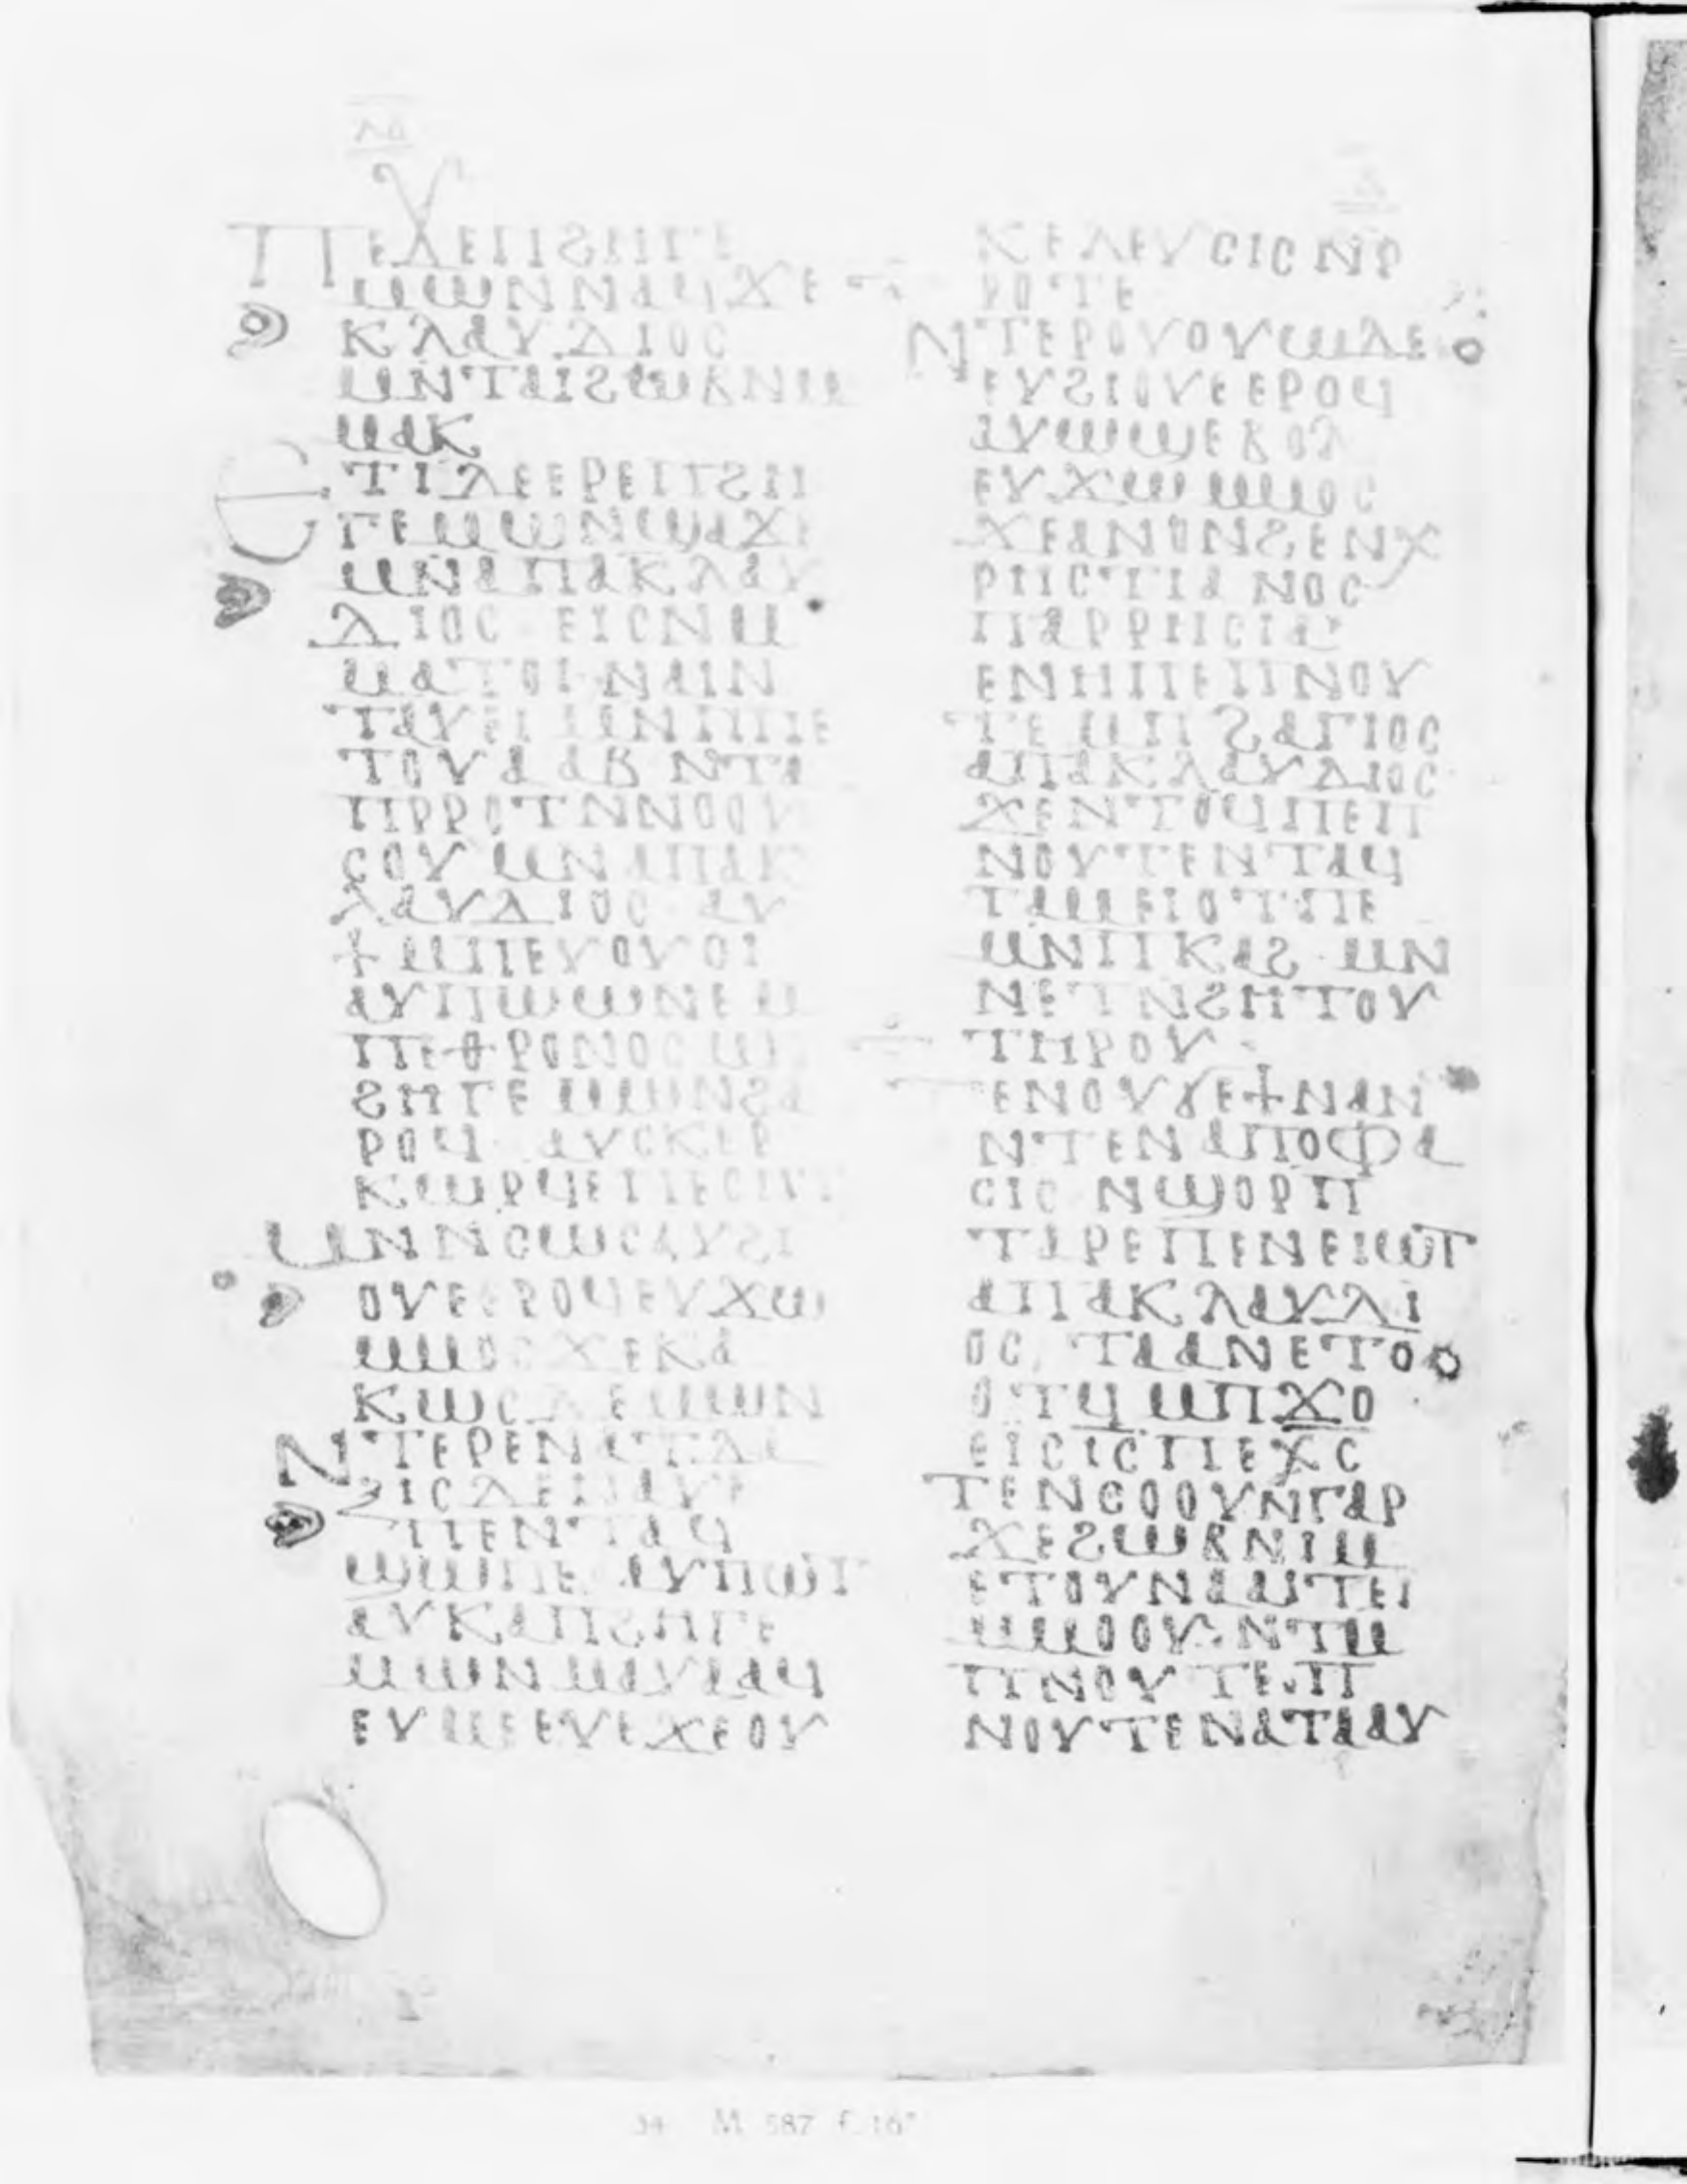 ⲗⲁ
ⲡⲉϫⲉⲡϩⲏⲅⲉ
ⲙⲱⲛⲛⲁϥϫⲉ
ⲕⲗⲁⲩⲇⲓⲟⲥ
ⲙⲛⲧⲁⲓϩⲱⲃⲛⲙ
ⲙⲁⲕ
ⲉⲧⲓⲇⲉⲉⲣⲉⲡϩⲏ
ⲅⲉⲙⲱⲛϣⲁϫⲉ
ⲙⲛⲁⲡⲁⲕⲗⲁⲩ
ⲇⲓⲟⲥ ⲉⲓⲥⲙⲙ
ⲙⲁⲧⲟⲓ ⲛⲁⲓⲛ
ⲧⲁⲩⲉⲓ ⲙⲛⲡⲡⲉ
ⲧⲟⲩⲁⲁⲃ ⲛⲧⲁ
ⲡⲣⲣⲟⲧⲛⲛⲟⲟⲩ
ⲥⲟⲩ ⲙⲛⲁⲡⲁⲕ
ⲗⲁⲩⲇⲓⲟⲥ ⲁⲩ
ϯⲙⲡⲉⲩⲟⲩⲟⲓ
ⲁⲩⲡⲱⲱⲛⲉⲙ
ⲡⲉⲑⲣⲟⲛⲟⲥⲙⲡ
ϩⲏⲅⲉⲙⲱⲛϩⲁ
ⲣⲟϥ ⲁⲩⲥⲕⲉⲣ
ⲕⲱⲣϥⲉⲡⲉⲥⲏⲧ
ⲙⲛⲛⲥⲱⲥⲁⲩϩⲓ
ⲟⲩⲉⲉⲣⲟϥⲉⲩϫⲱ
ⲙⲙⲟⲥϫⲉⲕⲁ
ⲕⲱⲥ
ⲛⲧⲉⲣⲉⲛⲥⲧⲁ
ⲝⲓⲥⲇⲉⲛⲁⲩⲉ
ⲡⲉⲛⲧⲁϥ
ϣⲱⲡⲉ ⲁⲩⲡⲱⲧ
ⲁⲩⲕⲁⲡϩⲏⲅⲉ
ⲙⲱⲛ ⲙⲁⲩⲁⲁϥ
ⲉⲩⲙⲉⲉⲩⲉϫⲉⲟⲩ
ⲕⲉⲗⲉⲩⲥⲓⲥⲛⲣ
ⲣⲟⲧⲉ
ⲛⲧⲉⲣⲟⲩⲟⲩⲱⲇⲉ
ⲉⲩϩⲓⲟⲩⲉⲉⲣⲟϥ
ⲁⲩⲱϣⲉⲃⲟⲗ
ⲉⲩϫⲱ ⲙⲙⲟⲥ
ϫⲉⲁⲛⲟⲛϩⲉⲛⲭ
ⲣⲏⲥⲧⲓⲁⲛⲟⲥ
ⲡⲁⲣⲣⲏⲥⲓⲁ
ⲉⲛⲏⲡⲉⲡⲛⲟⲩ
ⲧⲉ ⲙⲡϩⲁⲅⲓⲟⲥ
ⲁⲡⲁⲕⲗⲁⲩⲇⲓⲟⲥ
ϫⲉⲛⲧⲟϥⲡⲉⲡ
ⲛⲟⲩⲧⲉⲛⲧⲁϥ
ⲧⲁⲙⲉⲓⲟⲧⲡⲉ
ⲙⲛⲡⲕⲁϩ ⲙⲛ
ⲛⲉⲧⲛϩⲏⲧⲟⲩ
ⲧⲏⲣⲟⲩ
ⲧⲉⲛⲟⲩϭⲉϯⲛⲁⲛ
ⲛⲧⲉⲛⲁⲡⲟⲫⲁ
ⲥⲓⲥ ⲛϣⲟⲣⲡ
ⲧⲁⲣⲉⲡⲉⲛⲉⲓⲱⲧ
ⲁⲡⲁⲕⲗⲁⲩⲇⲓ
ⲟⲥ ⲧⲁⲁⲛⲉⲧⲟ
ⲟⲧϥ ⲙⲡϫⲟ
ⲉⲓⲥⲓⲥⲡⲉⲭⲥ
ⲧⲉⲛⲥⲟⲟⲩⲛⲅⲁⲣ
ϫⲉϩⲱⲃⲛⲓⲙ
ⲉⲧⲟⲩⲛⲁⲁⲓⲧⲉⲓ
ⲙⲙⲟⲟⲩ ⲛⲧⲙ
ⲡⲛⲟⲩⲧⲉ ⲡ
ⲛⲟⲩⲧⲉⲛⲁⲧⲁⲁⲩ
34 M 587 f. 16ᵛ